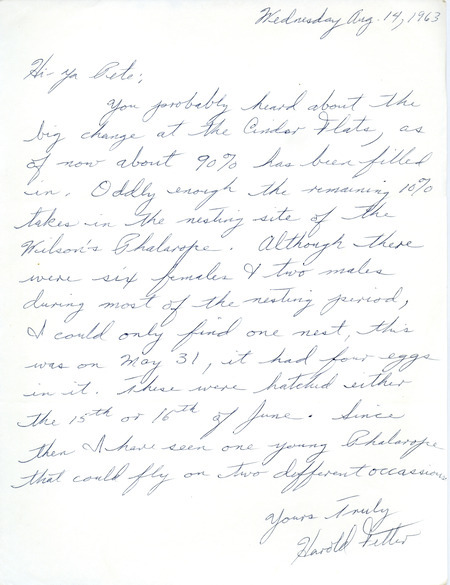 Wednesday Aug. 14, 1963
Hi-ya Pete;
You probably heard about the
big change at the Cinder Flats, as
of now about 90% has been filled
in. Oddly enough the remaining 10%
takes in the nesting site of the
Wilson's Phalarope. Although there
were six females & two males
during most of the nesting period,
I could only find one nest, this
was on May 31, it had four eggs
in it. These were hatched either
the 15th or 16th of June. Since
then I have seen one young Phalarope
that could fly on two different occasions
Yours Truly
Harold